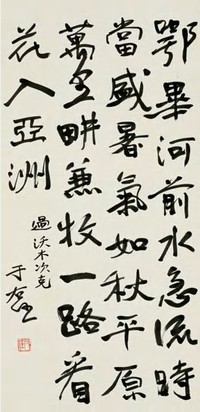 鄂畢河前水急流時
當盛暑氣如秋平原
萬里畊兼牧一路看
花入亞洲
過沃木次克
于右任